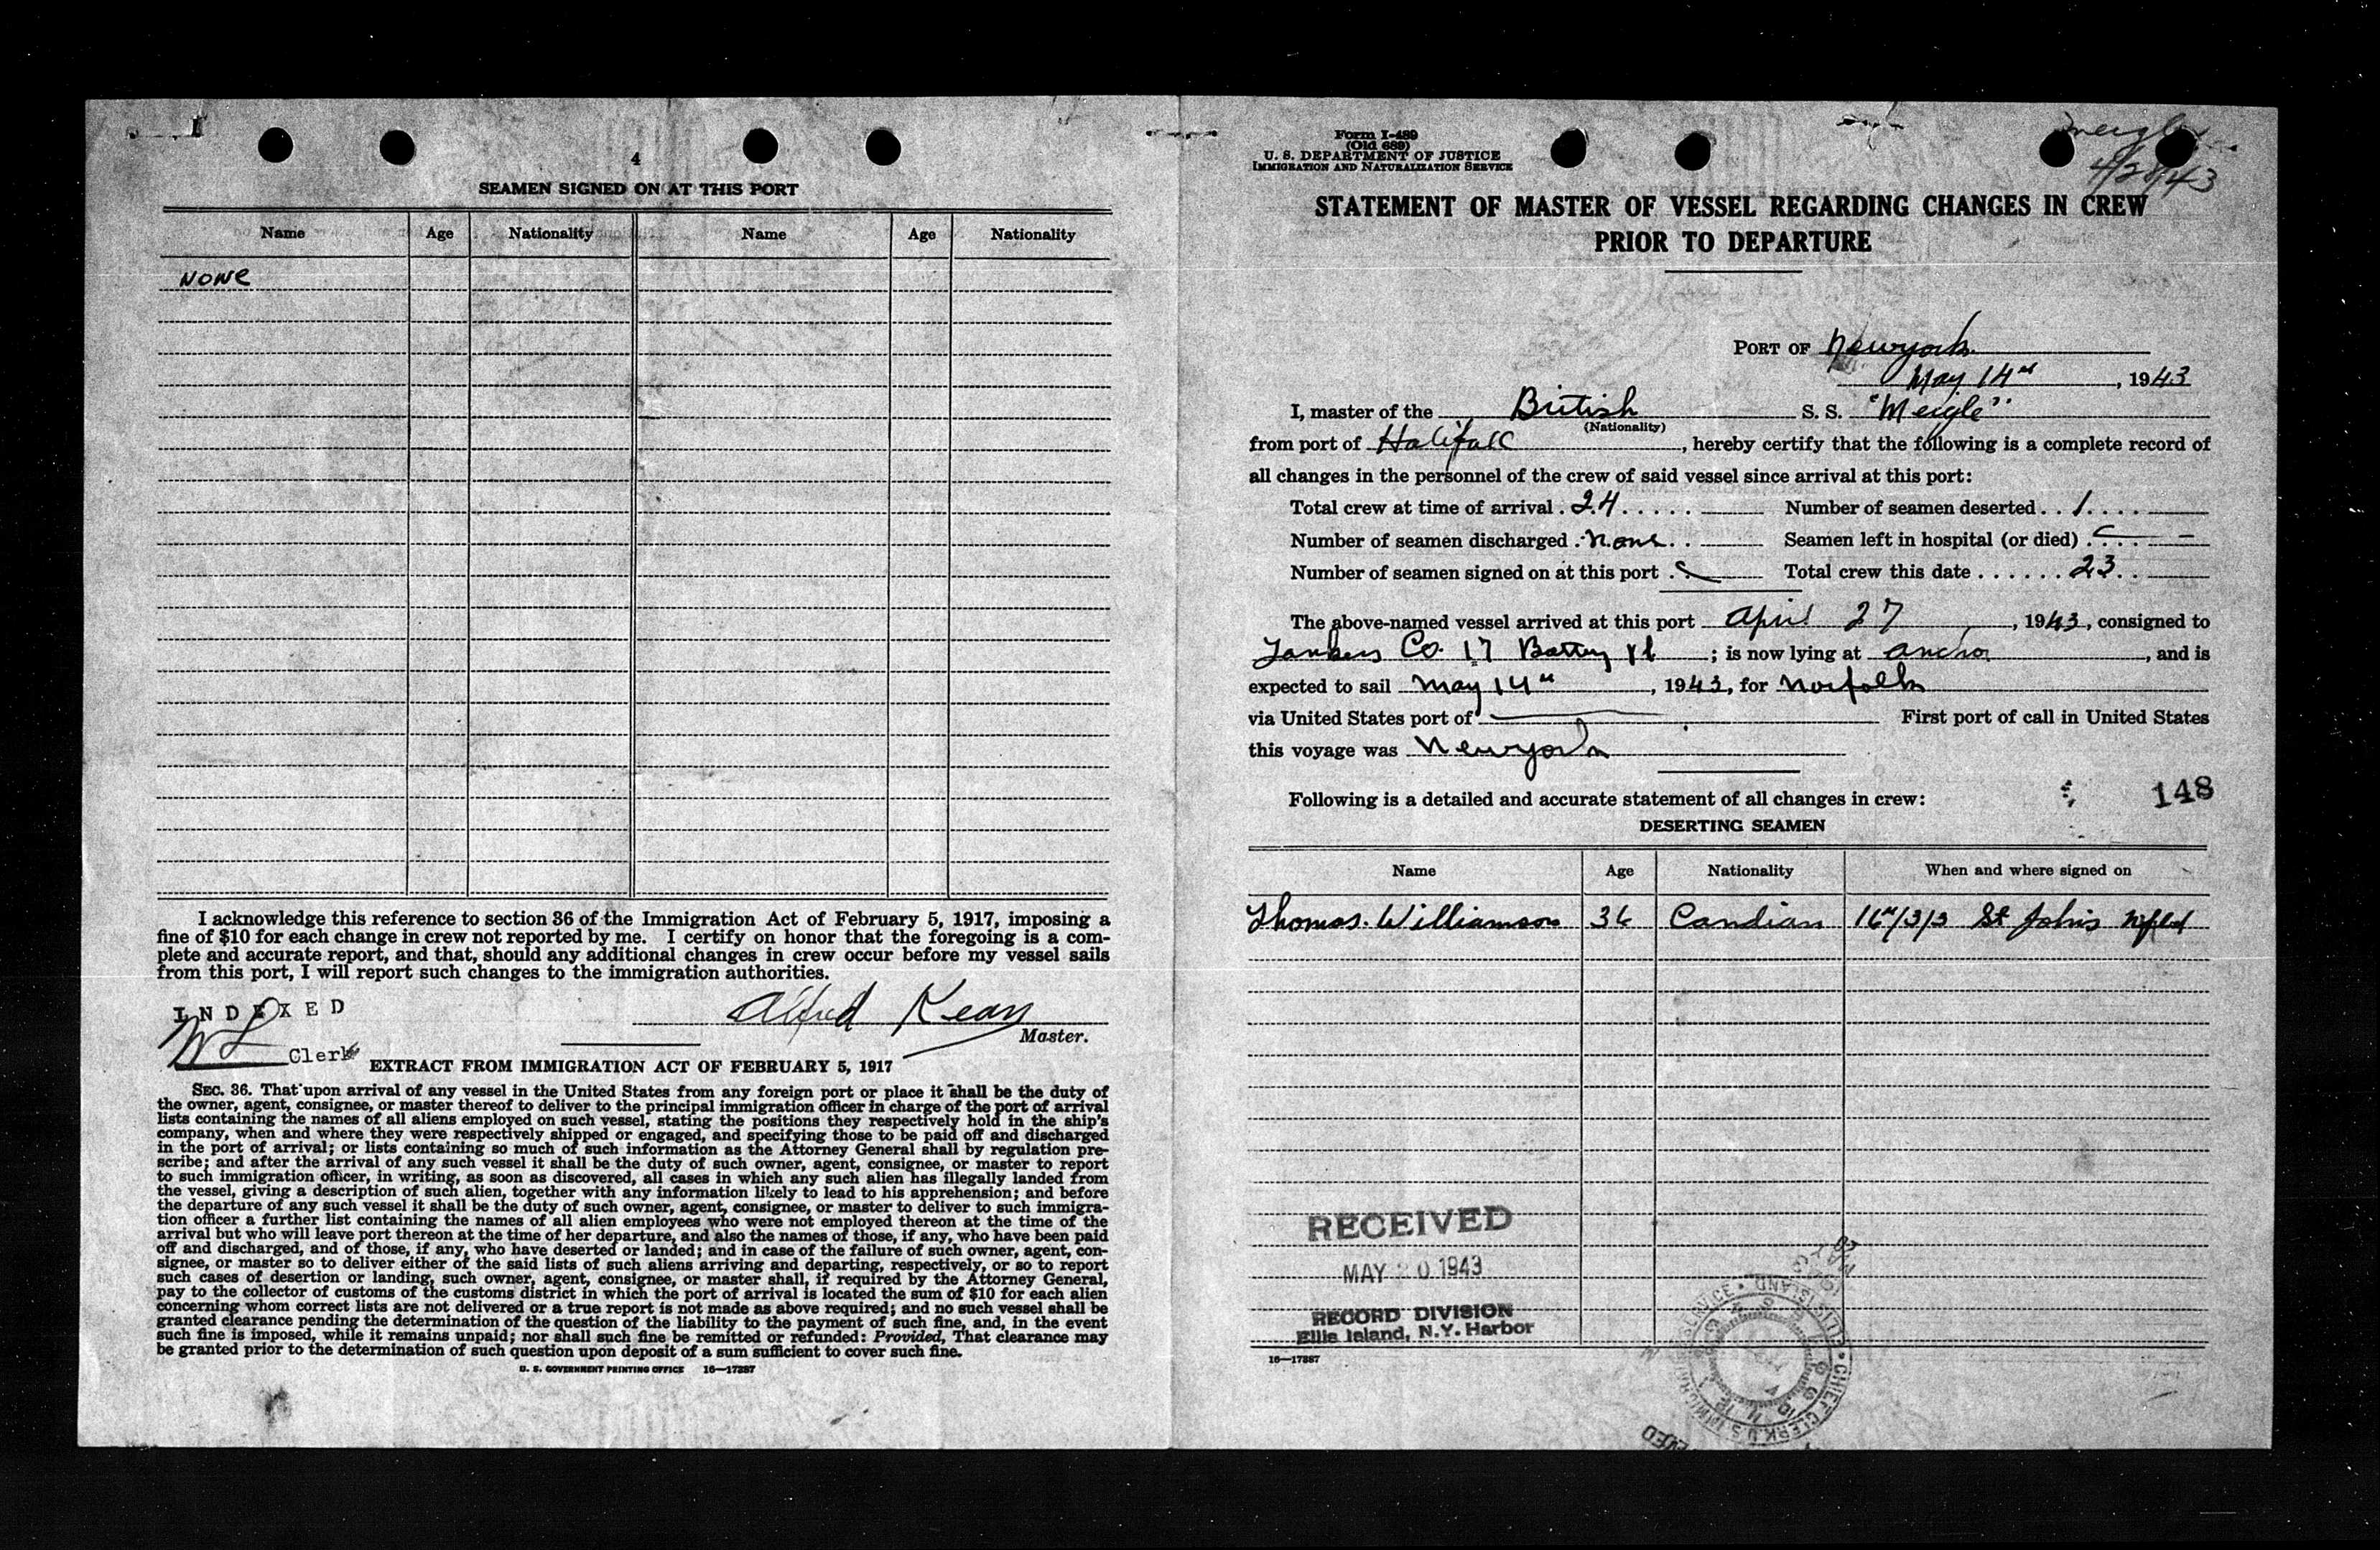 4
SEAMEN SIGNED ON AT THIS PORT
Name Age Nationality Name Age Nationality
NONE
I acknowledge this reference to section 36 of the Immigration Act of February 5, 1917, imposing a
fine of $10 for each change in crew not reported by me. I certify on honor that the foregoing is a com-
plete and accurate report, and that, should any additional changes in crew occur before my vessel sails
from this port, I will report such changes to the immigration authorities.
INDEXED
Alfred Kean
Master.
Clerk
EXTRACT FROM IMMIGRATION ACT OF FEBRUARY 5, 1917
SEC. 36. That upon arrival of any vessel in the United States from any foreign port or place it shall be the duty of
the owner, agent, consignee, or master thereof to deliver to the principal immigration officer in charge of the port of arrival
lists containing the names of all aliens employed on such vessel, stating the positions they respectively hold in the ship's
company, when and where they were respectively shipped or engaged, and specifying those to be paid off and discharged
in the port of arrival; or lists containing so much of such information as the Attorney General shall by regulation pre-
scribe; and after the arrival of any such vessel it shall be the duty of such owner, agent, consignee, or master to report
to such immigration officer, in writing, as soon as discovered, all cases in which any such alien has illegally landed from
the vessel, giving a description of such alien, together with any information likely to lead to his apprehension; and before
the departure of any such vessel it shall be the duty of such owner, agent, consignee, or master to deliver to such immigra-
tion officer a further list containing the names of all alien employees who were not employed thereon at the time of the
arrival but who will leave port thereon at the time of her departure, and also the names of those, if any, who have been paid
off and discharged, and of those, if any, who have deserted or landed; and in case of the failure of such owner, agent, con-
signee, or master so to deliver either of the said lists of such aliens arriving and departing, respectively, or so to report
such cases of desertion or landing, such owner, agent, consignee, or master shall, if required by the Attorney General,
pay to the collector of customs of the customs district in which the port of arrival is located the sum of $10 for each alien
concerning whom correct lists are not delivered or a true report is not made as above required; and no such vessel shall be
granted clearance pending the determination of the question of the liability to the payment of such fine, and, in the event
such fine is imposed, while it remains unpaid; nor shall such fine be remitted or refunded: Provided, That clearance may
be granted prior to the determination of such question upon deposit of a sum sufficient to cover such fine.
U. S. GOVERNMENT PRINTING OFFICE 16—17887
Form I-489
(Old 689)
U. S. DEPARTMENT OF JUSTICE
IMMIGRATION AND NATURALIZATION SERVICE
Meigle
4/28/43
STATEMENT OF MASTER OF VESSEL REGARDING CHANGES IN CREW
PRIOR TO DEPARTURE
PORT OF Newyork
May 14th, 1943
I, master of the British S. S. "Meigle"
(Nationality)
from port of Halifax, hereby certify that the following is a complete record of
all changes in the personnel of the crew of said vessel since arrival at this port:
Total crew at time of arrival 24 Number of seamen deserted 1
Number of seamen discharged none Seamen left in hospital (or died)
Number of seamen signed on at this port Total crew this date 23
The above-named vessel arrived at this port April 27, 1943, consigned to
Co. 17 Battery Pl; is now lying at anchor, and is
expected to sail May 14th, 1943, for Norfolk
via United States port of First port of call in United States
this voyage was Newyork
Following is a detailed and accurate statement of all changes in crew: 148
DESERTING SEAMEN
Name Age Nationality When and where signed on
Thomas. Williamson 36 Candian St John's Nfld
RECEIVED
MAY 20 1943
RECORD DIVISION
Ellis Island, N.Y. Harbor
16—17887
ELLIS ISLAND • CHIEF CLERK U.S. IMMIGRATION SERVICE